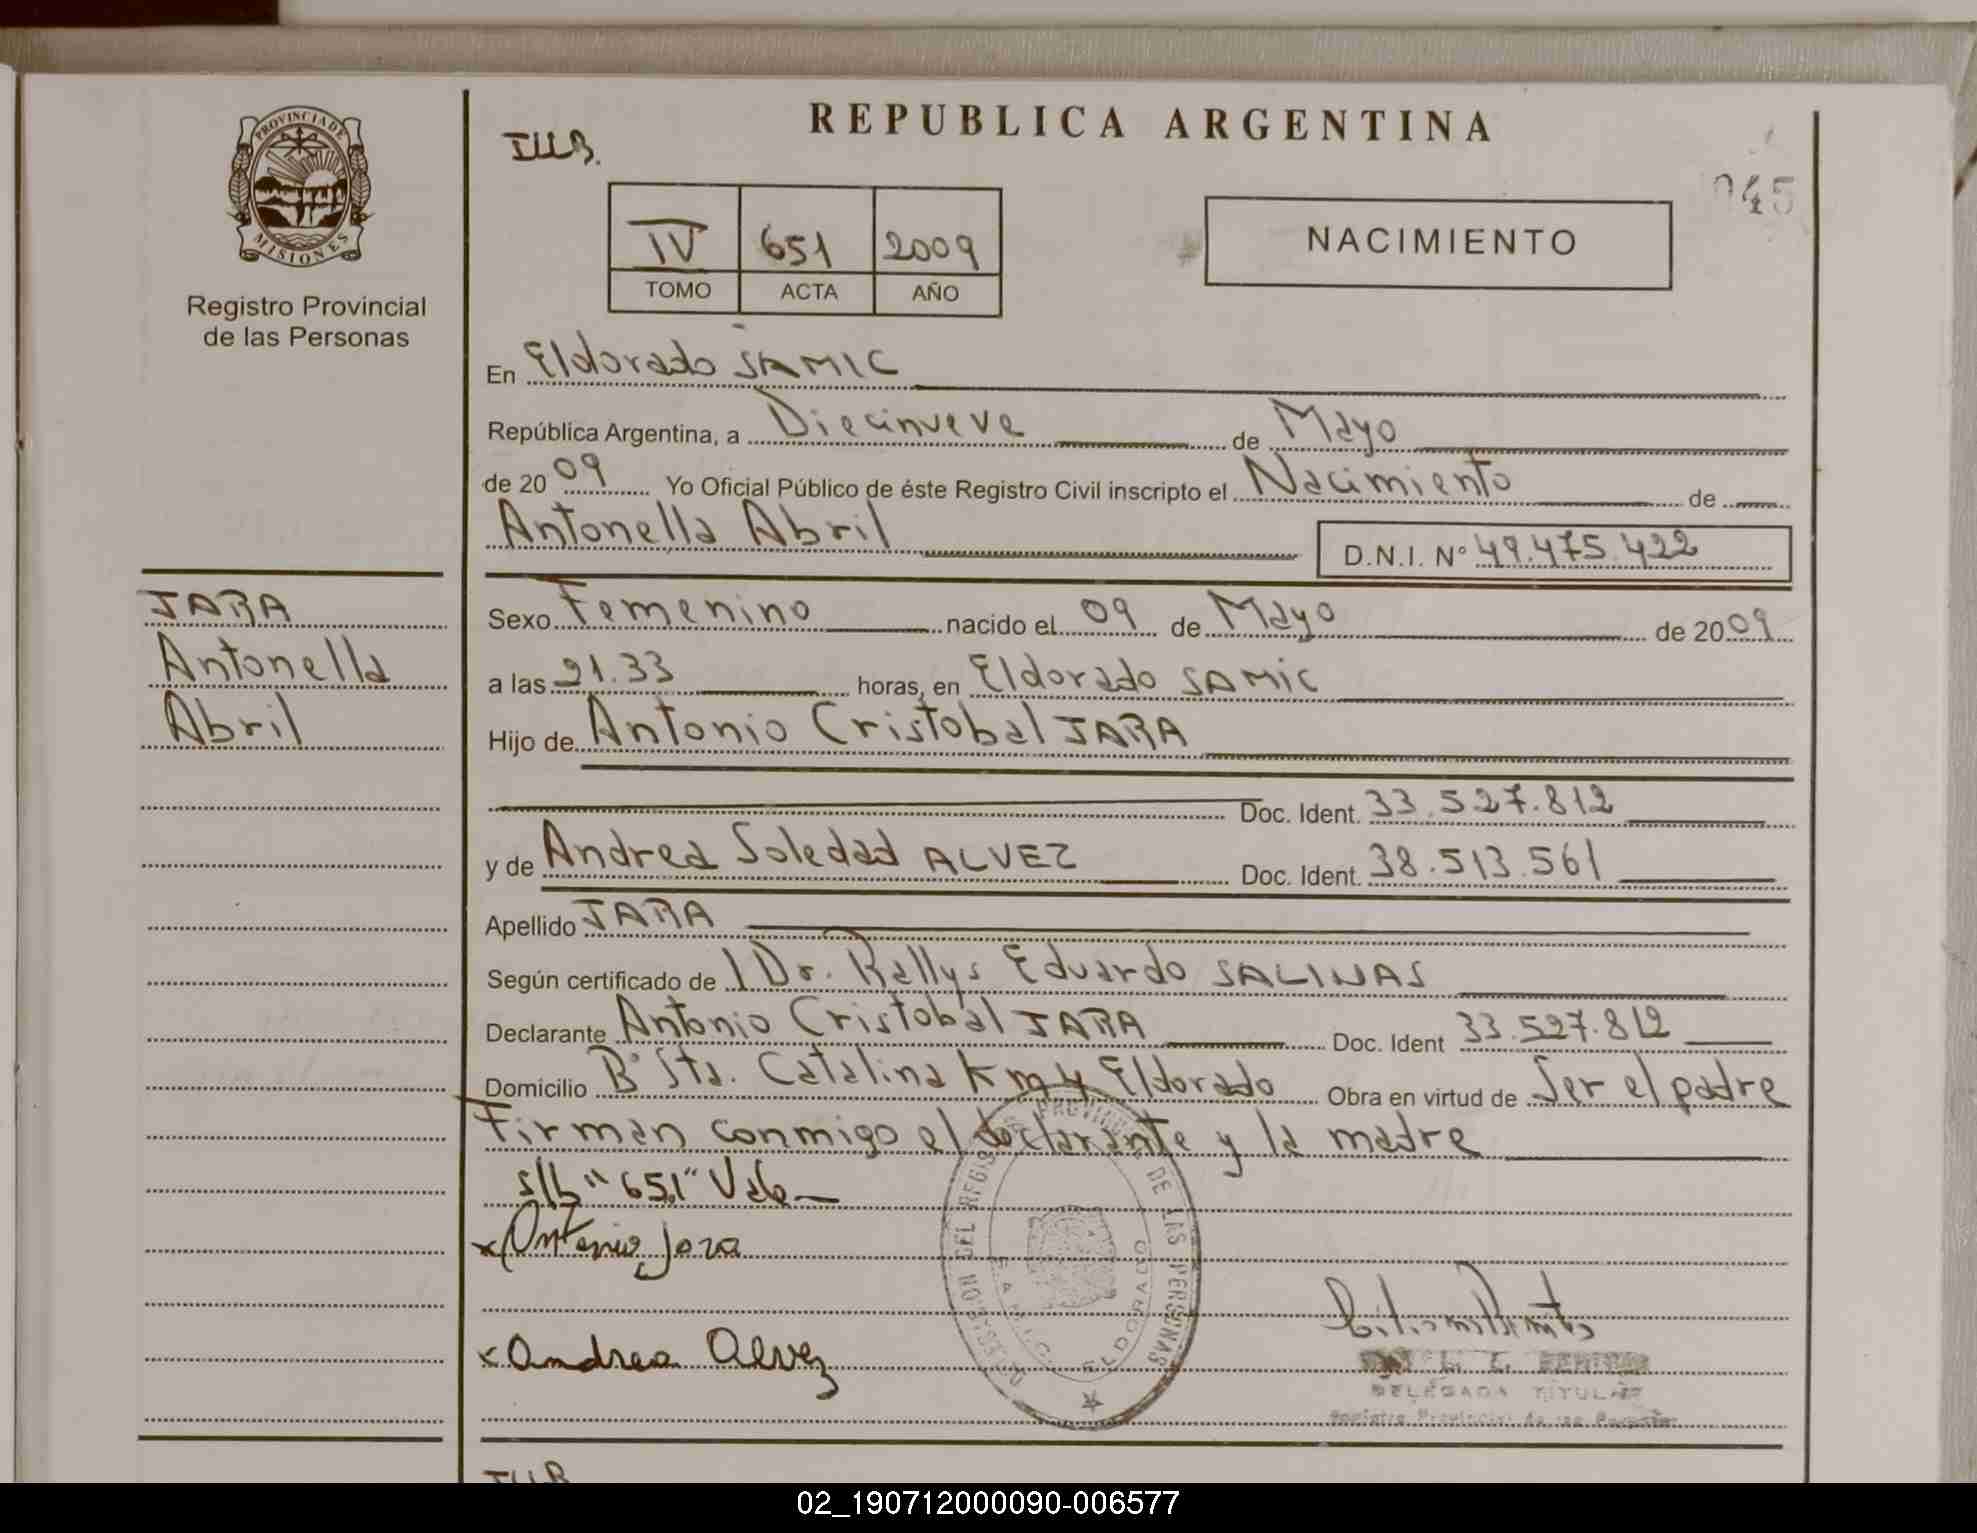 PROVINCIA DE
MISIONES
Registro Provincial
de las Personas
JARA
Antonella
Abril
REPUBLICA ARGENTINA
045
IV 651 2009
TOMO ACTA AÑO
NACIMIENTO
En Eldorado SAMIC
República Argentina, a Diecinueve de Mayo
de 20 09 Yo Oficial Público de éste Registro Civil inscripto el Nacimiento de
Antonella Abril D.N.I. Nº 49.475.422
Sexo Femenino nacido el 09 de Mayo de 2009
a las 21.33 horas, en Eldorado SAMIC
Hijo de Antonio Cristobal JARA
Doc. Ident. 33.527.812
y de Andrea Soledad ALVEZ Doc. Ident. 38.513.561
Apellido JARA
Según certificado de l Dr. Rallys Eduardo SALINAS
Declarante Antonio Cristobal JARA Doc. Ident 33.527.812
Domicilio Bº Sta. Catalina Km 4 Eldorado Obra en virtud de Ser el padre
Firman conmigo el declarante y la madre
s/b "651" Vale
x Antonio Jara
x Andrea Alvez
DELEGADA TITULAR
Registro Provincial de las Personas
DELEGACION DEL REGISTRO PROVINCIAL DE LAS PERSONAS
S.A.M.I.C. ELDORADO
02_190712000090-006577